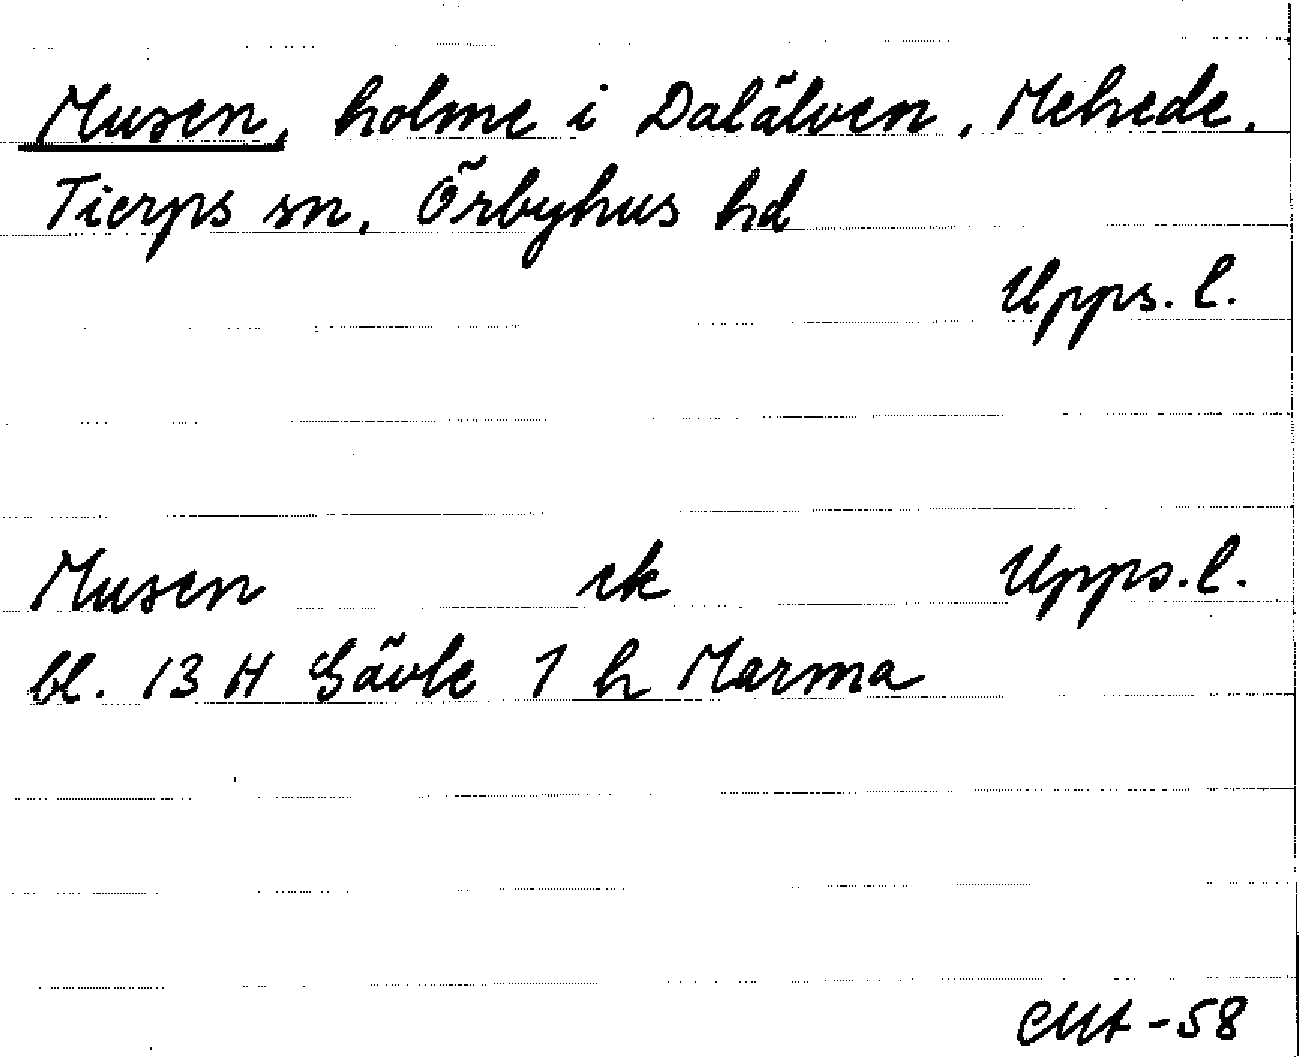 Musen, holme i Dalälven, Mehede,
Tierps sn, Örbyhus hd
Upps. l.
Musen ek Upps. l.
bl. 13 H Gävle 1 h Marma
-58